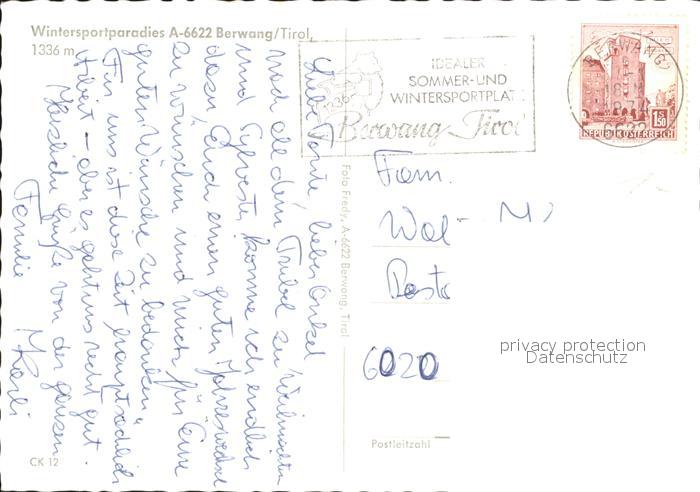 Wintersportparadies A-6622 Berwang/Tirol,
1336 m
Liebe Tante, lieber Onkel
nach all dem Trubel zu Weihnachten
und Sylvester komme ich endlich
dazu, Euch einen guten Jahreswechsel
zu wünschen und mich für Eure
guten Wünsche zu bedanken.
Für uns ist diese Zeit hauptsächlich
Arbeit – aber es geht uns recht gut.
Herzliche Grüße von der ganzen
Familie
CK 12
Foto Fredy, A-6622 Berwang, Tirol
1336
IDEALER
SOMMER-UND
WINTERSPORTPLATZ
Berwang Tirol
BERWANG
6622
REPUBLIK ÖSTERREICH
1.50
S
Fam.
Wal- M
6020
privacy protection
Datenschutz
Postleitzahl